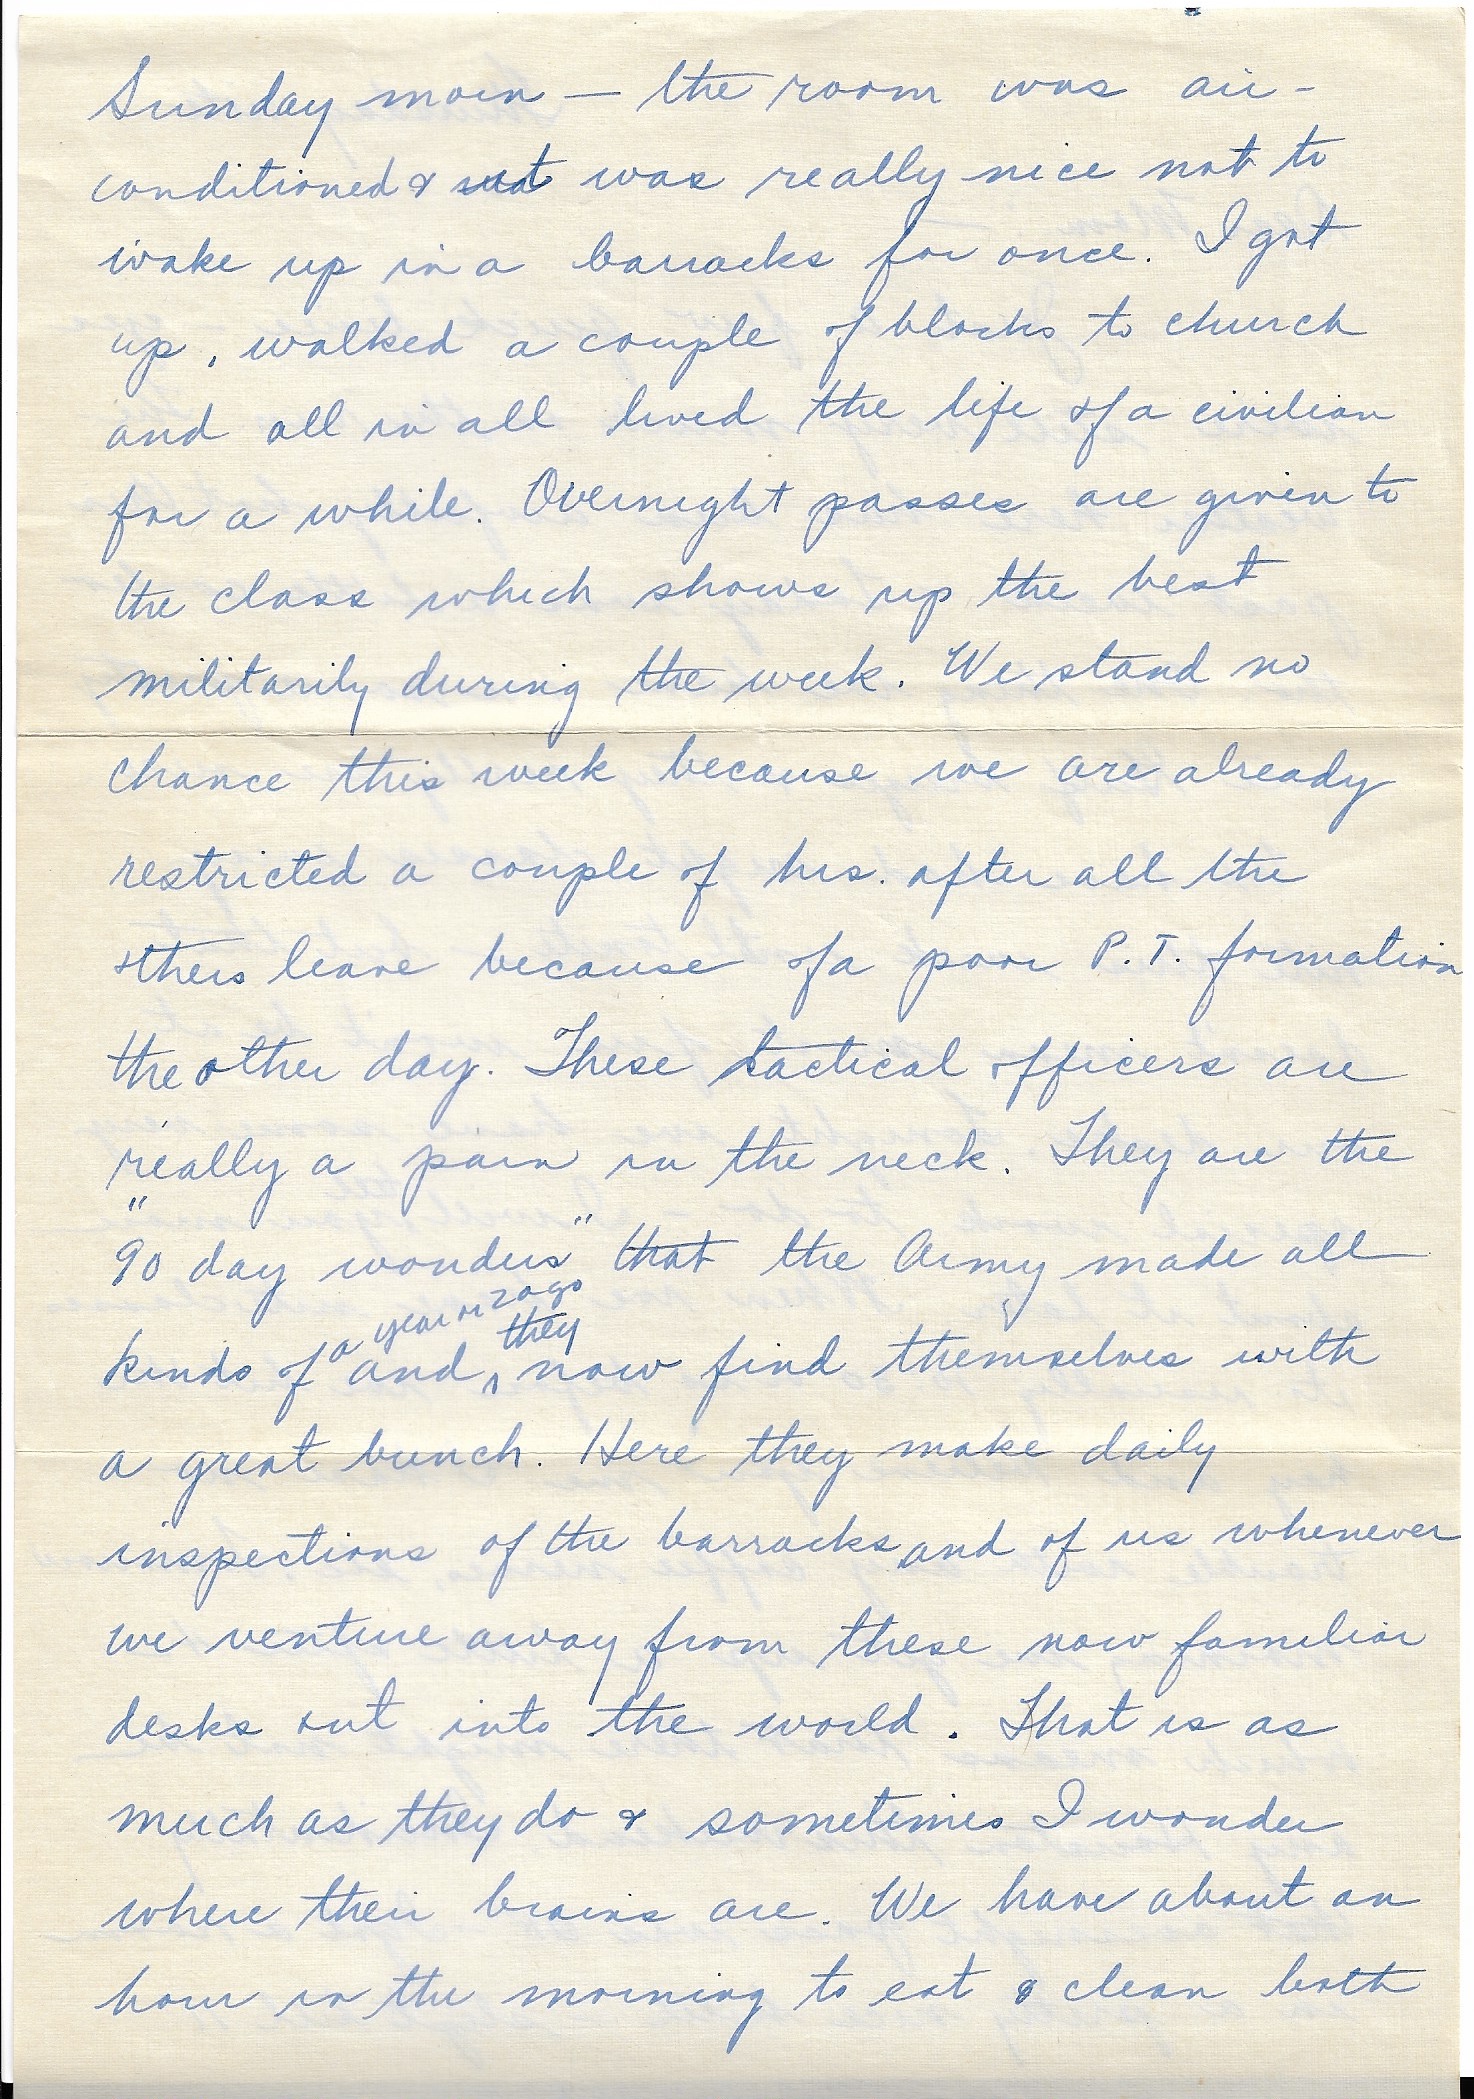 Sunday morn — the room was air-
conditioned & it was really nice not to
wake up in a barracks for once. I got
up, walked a couple of blocks to church
and all in all lived the life of a civilian
for a while. Overnight passes are given to
the class which shows up the best
militarily during the week. We stand no
chance this week because we are already
restricted a couple of hrs. after all the
others leave because of a poor P.T. formation
the other day. These tactical officers are
really a pain in the neck. They are the
"90 day wonders" that the Army made all
a year or 2 ago they
kinds of and now find themselves with
a great bunch. Here they make daily
inspections of the barracks and of us whenever
we venture away from these now familiar
desks out into the world. That is as
much as they do & sometimes I wonder
where their brains are. We have about an
hour in the morning to eat & clean both